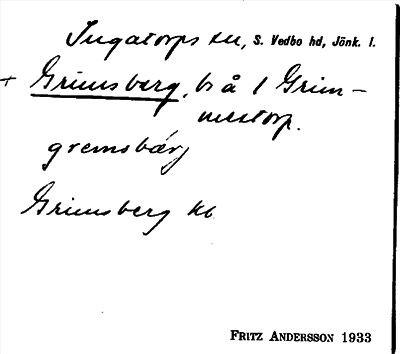 Ingatorps sn, S. Vedbo hd, Jönk. l.
+ Grimsberg, bs å 1 Grim-
mestorp.
gremsbärj
Grimsberg kb
FRITZ ANDERSSON 1933